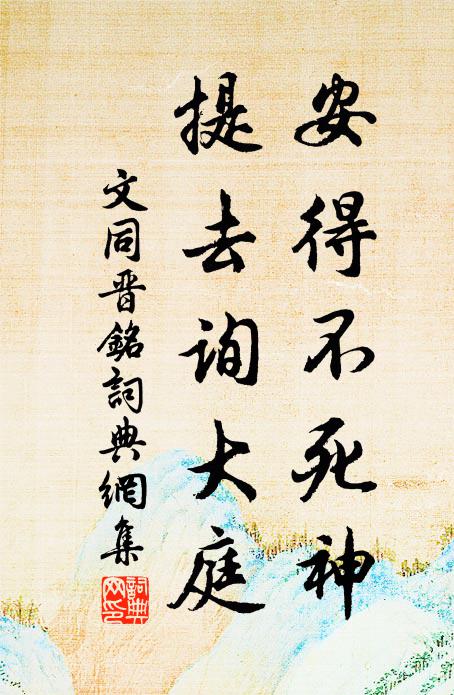 安得不死神
提去询大庭
文同晋銘詞典網集
詞典网印